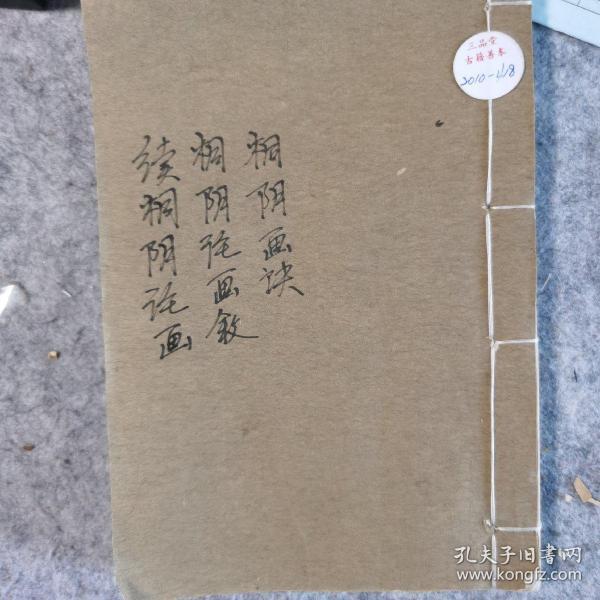 三品堂
古籍善本
2010-4/18
桐阴画诀
桐阴论画叙
续桐阴论画
孔夫子旧书网
www.kongfz.com